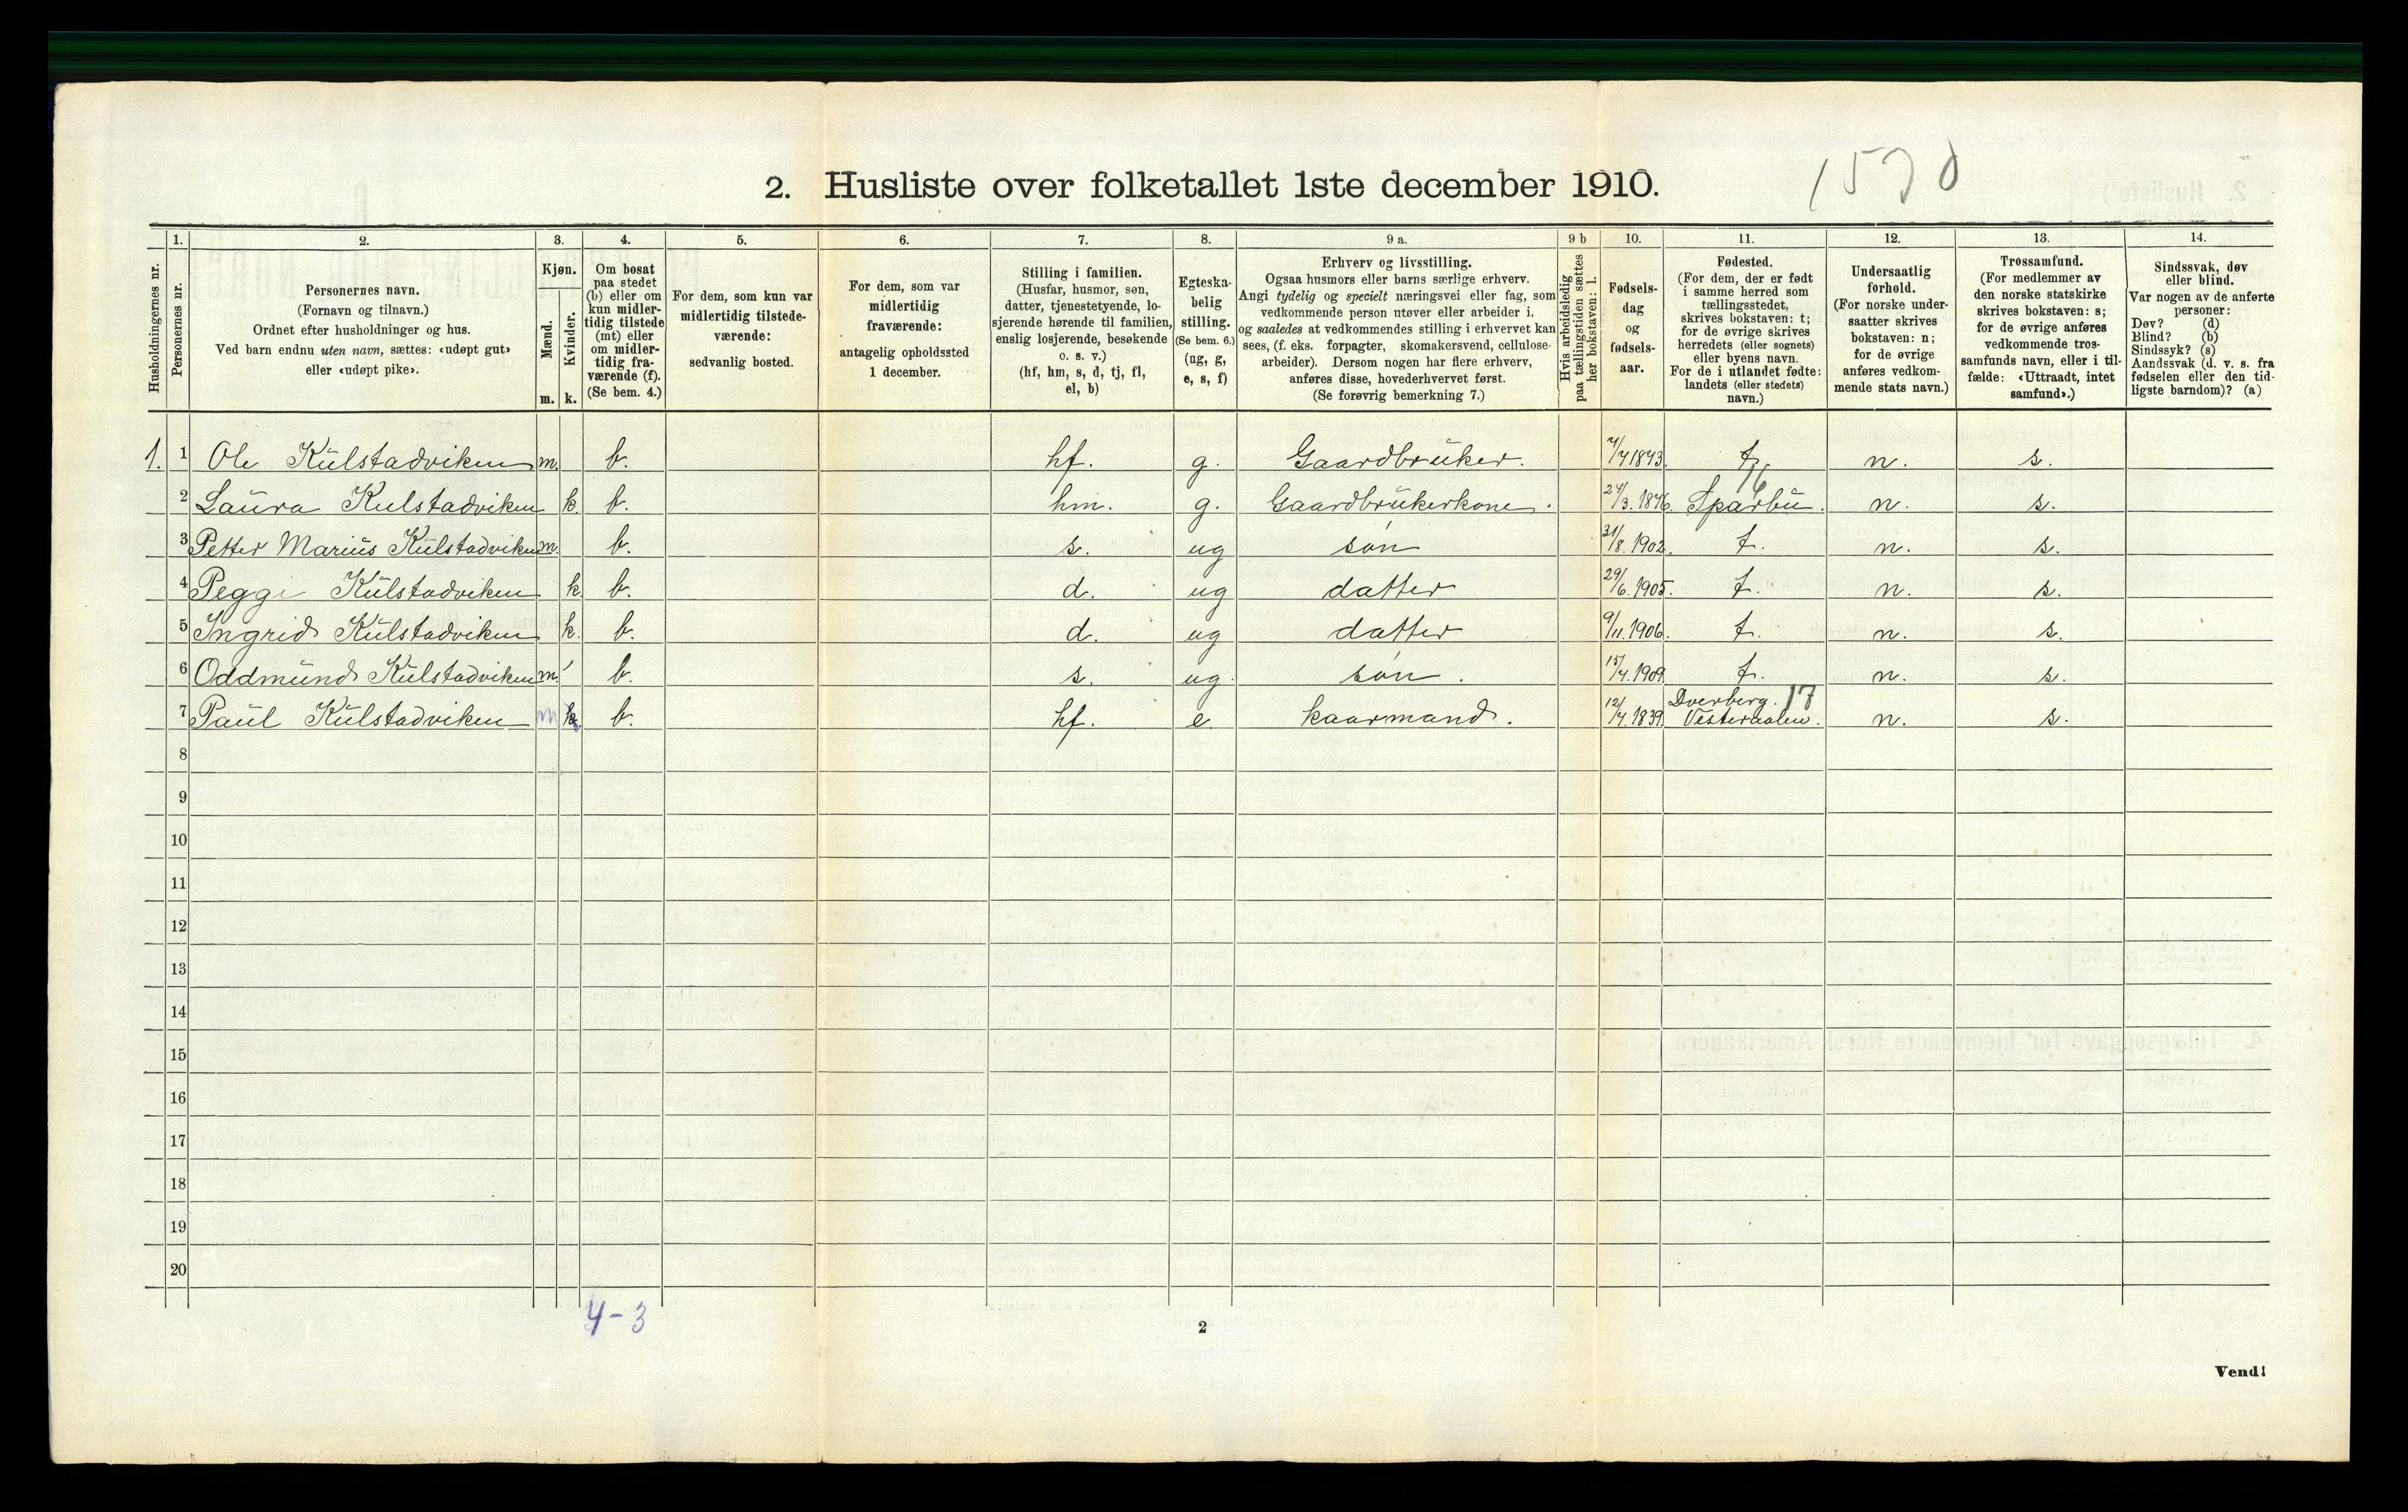 1570
2. Husliste over folketallet 1ste december 1910.
Husholdningernes nr.
1.
Personernes nr.
2.
Personernes navn.
(Fornavn og tilnavn.)
Ordnet efter husholdninger og hus.
Ved barn endnu uten navn, sættes: «udøpt gut»
eller «udøpt pike».
3.
Kjøn.
Mænd.
Kvinder.
m. k.
4.
Om bosat
paa stedet
(b) eller om
kun midler-
tidig tilstede
(mt) eller
om midler-
tidig fra-
værende (f).
(Se bem. 4.)
5.
For dem, som kun var
midlertidig tilstede-
værende:
sedvanlig bosted.
6.
For dem, som var
midlertidig
fraværende:
antagelig opholdssted
1 december.
7.
Stilling i familien.
(Husfar, husmor, søn,
datter, tjenestetyende, lo-
sjerende hørende til familien,
enslig losjerende, besøkende
o. s. v.)
(hf, hm, s, d, tj, fl,
el, b)
8.
Egteska-
belig
stilling.
(Se bem. 6.)
(ug, g,
e, s, f)
9 a.
Erhverv og livsstilling.
Ogsaa husmors eller barns særlige erhverv.
Angi tydelig og specielt næringsvei eller fag, som
vedkommende person utøver eller arbeider i,
og saaledes at vedkommendes stilling i erhvervet kan
sees, (f. eks. forpagter, skomakersvend, cellulose-
arbeider). Dersom nogen har flere erhverv,
anføres disse, hovederhvervet først.
(Se forøvrig bemerkning 7.)
9 b
Hvis arbeidsledig
paa tællingstiden sættes
her bokstaven: l.
10.
Fødsels-
dag
og
fødsels-
aar.
11.
Fødested.
(For dem, der er født
i samme herred som
tællingsstedet,
skrives bokstaven: t;
for de øvrige skrives
herredets (eller sognets)
eller byens navn.
For de i utlandet fødte:
landets (eller stedets)
navn.)
12.
Undersaatlig
forhold.
(For norske under-
saatter skrives
bokstaven: n;
for de øvrige
anføres vedkom-
mende stats navn.)
13.
Trossamfund.
(For medlemmer av
den norske statskirke
skrives bokstaven: s;
for de øvrige anføres
vedkommende tros-
samfunds navn, eller i til-
fælde: «Uttraadt, intet
samfund».)
14.
Sindssvak, døv
eller blind.
Var nogen av de anførte
personer:
Døv? (d)
Blind? (b)
Sindssyk? (s)
Aandssvak (d. v. s. fra
fødselen eller den tid-
ligste barndom)? (a)
1. 1 Ole Kulstadviken m. b. hf. g. Gaardbruker. 7/7 1873. t. n. s.
16
2 Laura Kulstadviken k. b. hm. g. Gaardbrukerkone. 24/3. 1876. Sparbu. n. s.
3 Petter Marius Kulstadviken m. b. s. ug søn 31/8. 1902. t. n. s.
4 Peggi Kulstadviken k. b. d. ug datter 29/6. 1905. t. n. s.
5 Ingrid Kulstadviken k. b. d. ug datter 9/11. 1906. t. n. s.
6 Oddmund Kulstadviken m. b. s. ug. søn. 15/4. 1909. t. n. s.
Dverberg. 17
7 Paul Kulstadviken m k. b. hf. e. kaarmand. 12/4. 1839. Vesteraalen. n. s.
8
9
10
11
12
13
14
15
16
17
18
19
20
4-3
2
Vend!